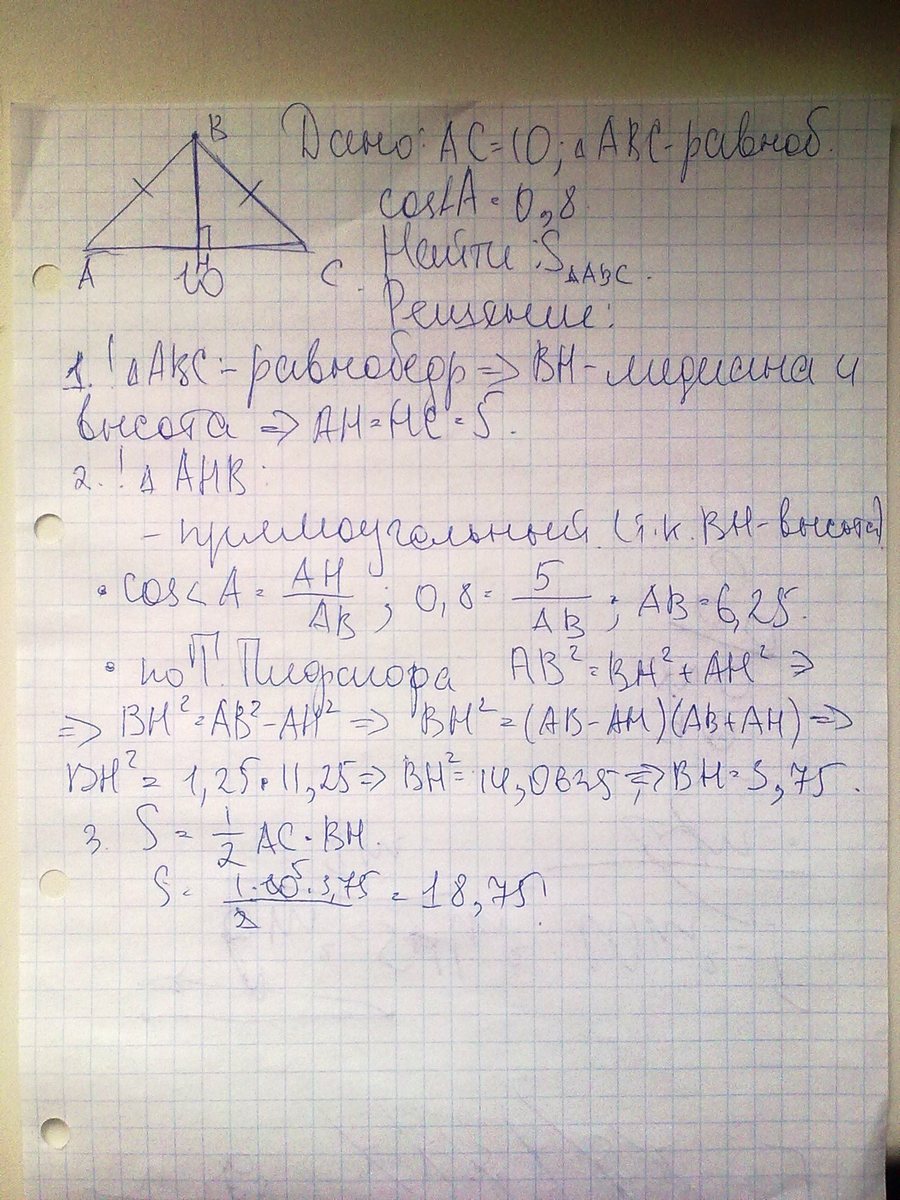 B
A
H
10
C
Дано: AC=10; △ABC-равноб.
cos∠A=0,8
Найти: S△ABC.
Решение:
1. ! △ABC-равнобедр => BH-медиана и
высота => AH=HC=5.
2. ! △AHB:
- прямоугольный (т.к. BH-высота)
• cos∠A = AH/AB ; 0,8 = 5/AB ; AB=6,25.
• по Т. Пифагора AB²=BH²+AH² =>
=> BH²=AB²-AH² => BH²=(AB-AH)(AB+AH) =>
BH²= 1,25·11,25 => BH²=14,0625 => BH=3,75.
3. S = 1/2 AC·BH.
S = 1·10·3,75/2 = 18,75